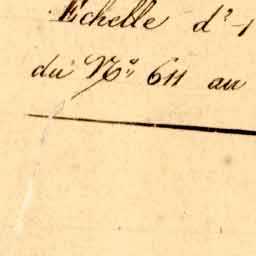 Echelle d'
du Nº 611 au